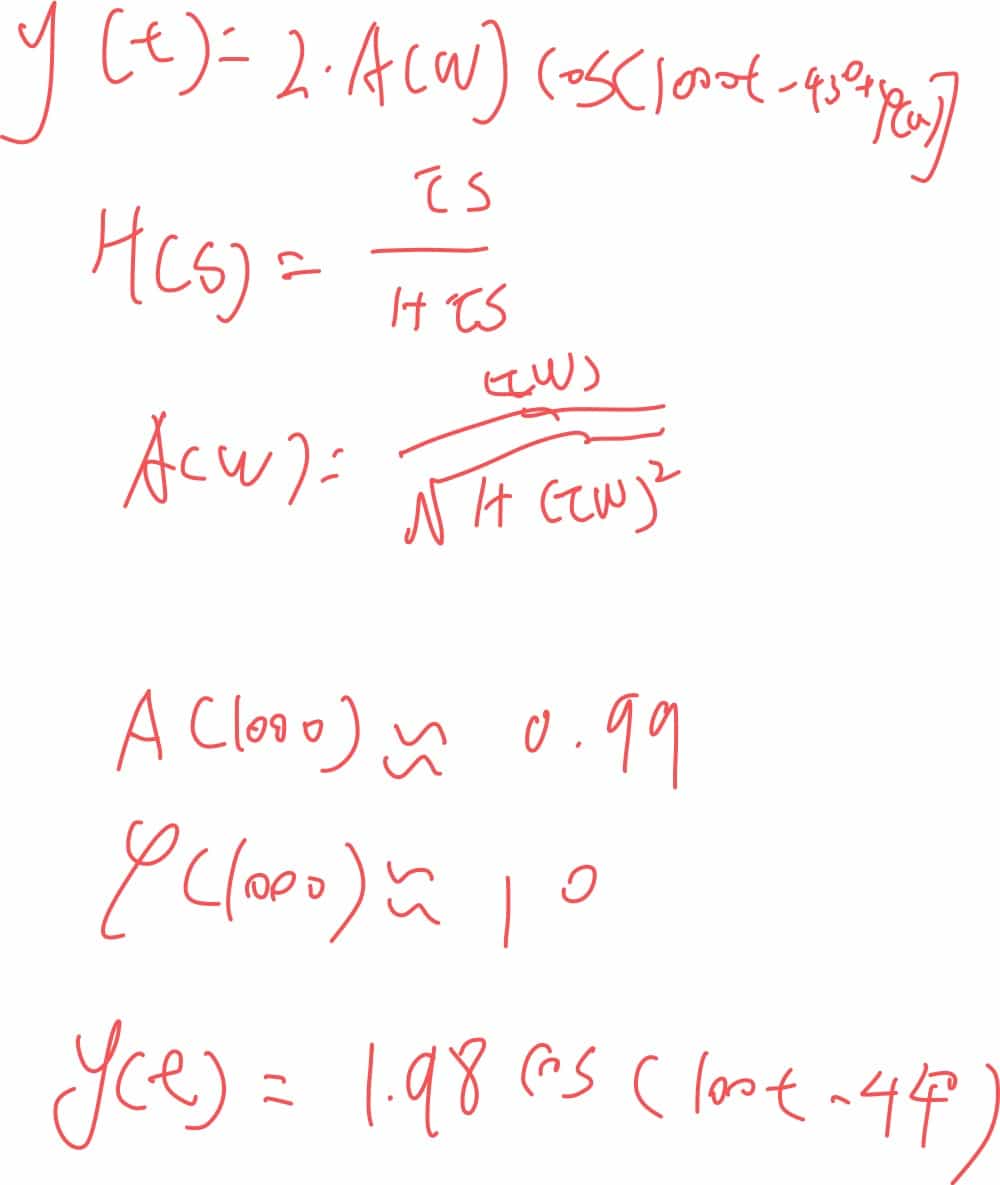 y(t)= 2·A(w) cos(1000t -45°+φ(w)]
H(s) = τs / 1+τs
A(w)= (τw) / √1+(τw)²
A(1000) ≈ 0.99
φ(1000) ≈ 1°
y(t) = 1.98 cos(1000t -44°)